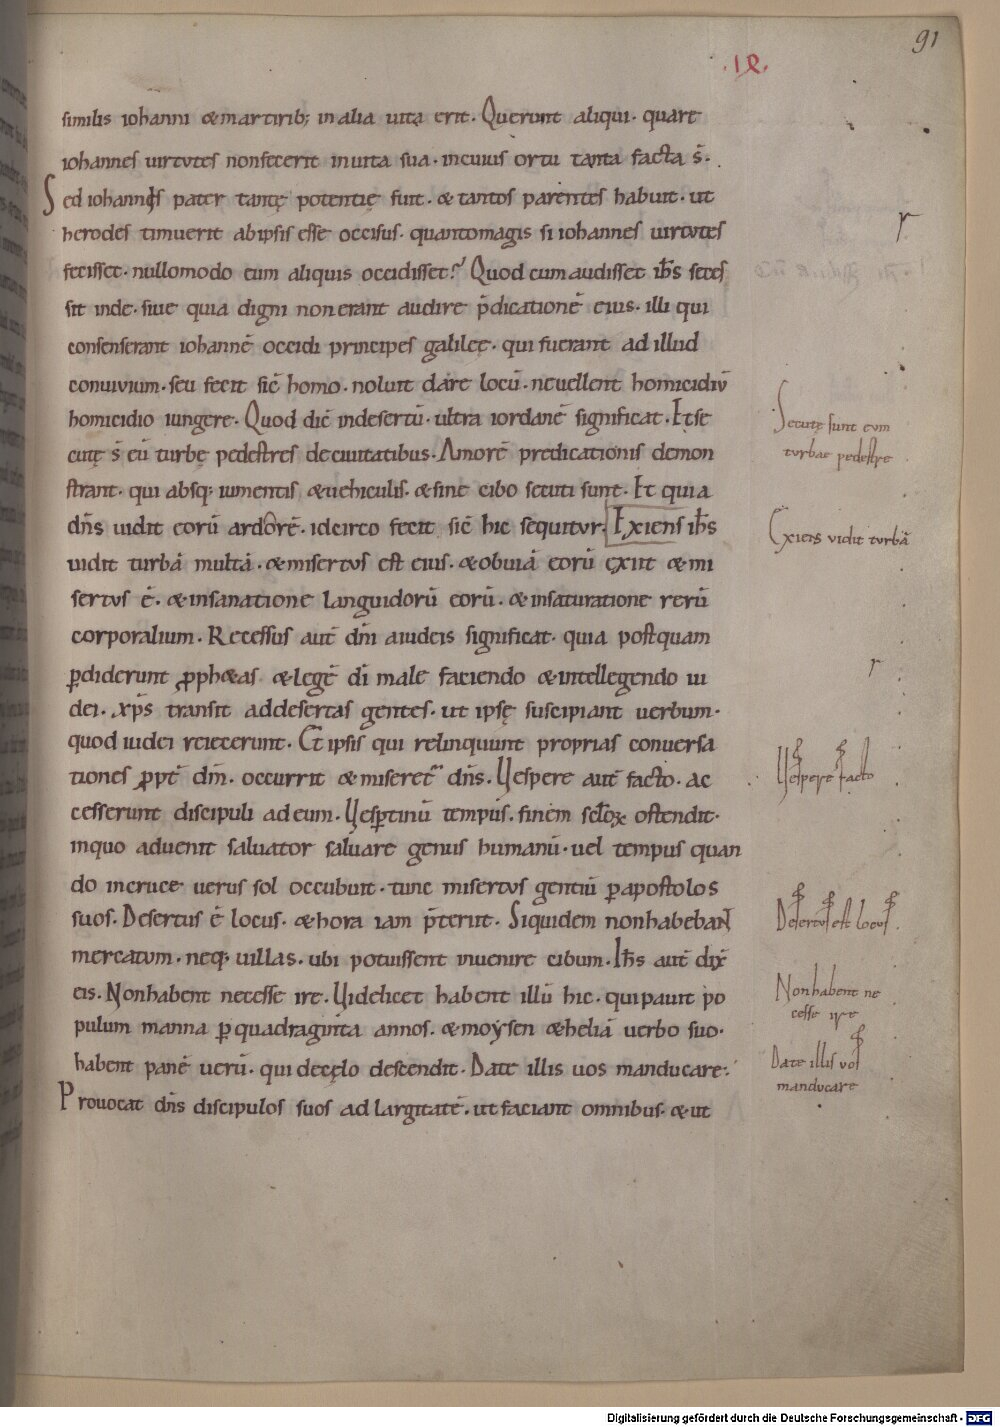 91
.IX.
similis iohanni & martirib; in alia uita erit. Querunt aliqui. quare
iohannes uirtutes non fecerit in uita sua. in cuius ortu tanta facta s̄.
Sed iohannis pater tantę potentię fuit. & tantos parentes habuit. ut
herodes timuerit ab ipsis esse occisus. quanto magis si iohannes uirtutes
fecisset. nullomodo eum aliquis occidisset? Quod cum audisset ih̄s seces
sit inde. siue quia digni non erant audire p̄dicationē eius. illi qui
consenserant iohannē occidi principes galileę. qui fuerant ad illud
conuiuium. seu fecit sic̄ homo. noluit dare locū. ne uellent homicidiū
homicidio iungere. Quod dic̄ in desertū. ultra iordanē significat. Et se
cutę s̄ eū turbę pedestres de ciuitatibus. Amorē predicationis demon
strant. qui absq; iumentis & uehiculis. & sine cibo secuti sunt. Et quia
dn̄s uidit eorū ardorē. idcirco fecit sic̄ hic sequitur. Exiens ih̄s
uidit turbā multā. & misertus est eius. & obuiā eorū exiit & mi
sertus ē. & in sanatione languidorū eorū. & in saturatione rerū
corporalium. Recessus aut̄ dn̄i a iudeis significat. quia postquam
ꝑdiderunt ꝓph&as. & legē dī male faciendo & intellegendo iu
dei. xp̄s transit ad desertas gentes. ut ipsę suscipiant uerbum.
quod iudei reiecerunt. Et ipsis qui relinquunt proprias conuersa
tiones ꝓpt̄ dn̄m. occurrit & miseret᷑ dn̄s. Uespere aut̄ facto. ac
cesserunt discipuli ad eum. Uesꝑtinū tempus. finem sclo͞ꝝ ostendit.
in quo aduenit saluator saluare genus humanū. uel tempus quan
do in cruce uerus sol occubuit. tunc misertus gentiū ꝑ apostolos
suos. Desertus ē locus. & hora iam p̄teriit. Siquidem non habebant
mercatum. neq; uillas. ubi potuissent inuenire cibum. Ih̄s aut̄ dix̄
eis. Non habent necesse ire. Uidelicet habent illū hic. qui pauit po
pulum manna ꝑ quadraginta annos. & moysen & heliā uerbo suo.
habent panē uerū. qui de cęlo descendit. Date illis uos manducare.
Prouocat dn̄s discipulos suos ad largitatē. ut faciant omnibus. & ut
r
Secutę sunt eum
turbae pedestre
Exiens vidit turbā
r
Uespere facto
Desertus est locus
Non habent ne
cesse ire
Date illis uos
manducare
Digitalisierung gefördert durch die Deutsche Forschungsgemeinschaft - DFG